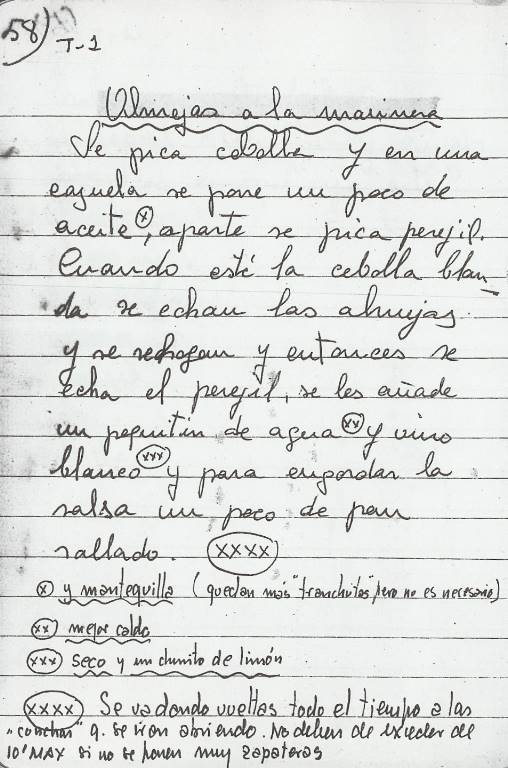 58)
T-1
Almejas a la marinera
Se pica cebolla y en una
cazuela se pone un poco de
aceite (x), aparte se pica perejil.
Cuando esté la cebolla blan-
da se echan las almejas
y se rehogan y entonces se
echa el perejil, se les añade
un poquitin de agua (xx) y vino
blanco (xxx) y para engordar la
salsa un poco de pan
rallado. (xxxx)
(x) y mantequilla (quedan más "tranchutas", pero no es necesario)
(xx) mejor caldo
(xxx) seco y un chorrito de limón
(xxxx) Se va dando vueltas todo el tiempo a las
"conchas" q. se iran abriendo. No deben de exceder de
10' MAX si no se ponen muy zapateras